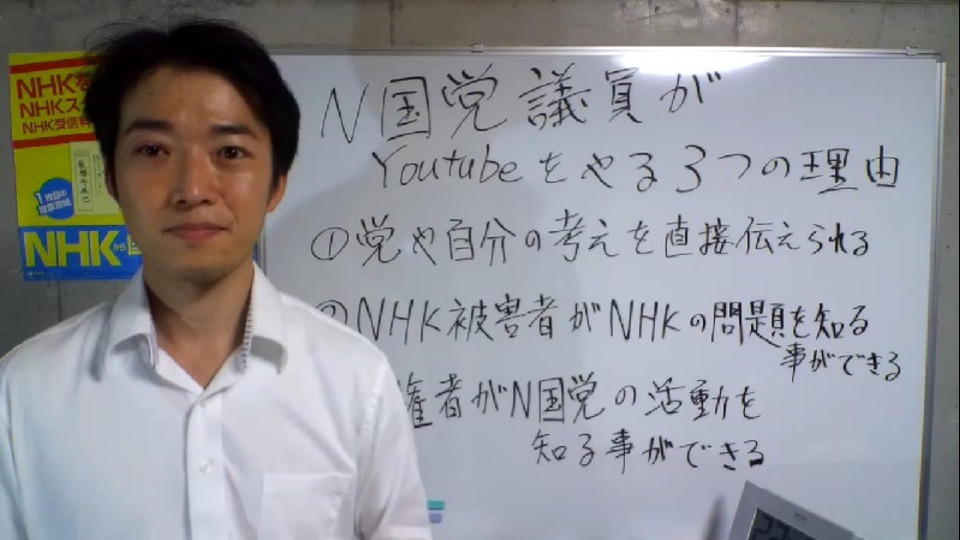 N国党議員が
Youtubeをやる3つの理由
①党や自分の考えを直接伝えられる
NHK被害者がNHKの問題を知る
事ができる
権者がN国党の活動を
知る事ができる
NHK
NHKス
NHK受信料
1枚目の
NHKから国